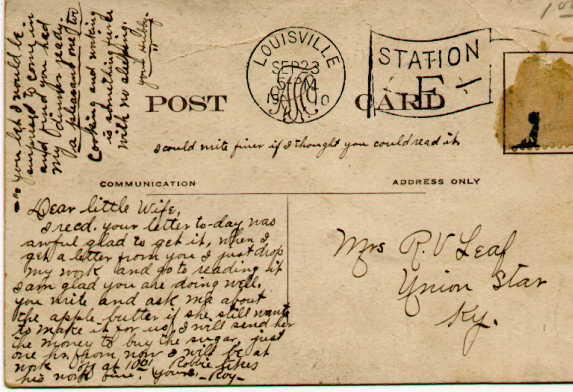 LOUISVILLE
SEP 23
5 PM
1910
KY.
STATION
E
POST CARD
I could write finer if I thought you could read it
COMMUNICATION
ADDRESS ONLY
Dear little Wife,
I recd. your letter to-day was
awful glad to get it, when I
get a letter from you I just drop
my work and go to reading it
I am glad you are doing well.
you write and ask me about
the apple butter if she still wants
to make it for us, I will send her
the money to buy the sugar, just
one hr. from now I will be at
work off at 10 Robbie likes
his work fine. Yours - Roy -
Mrs R. V Leaf
Union Star
Ky.
you bet I would be
surprised to come in
and find you had
my dinner ready.
a pleasant one too
Cooking and working
is something fierce
with no sleeping.
your Hubby.